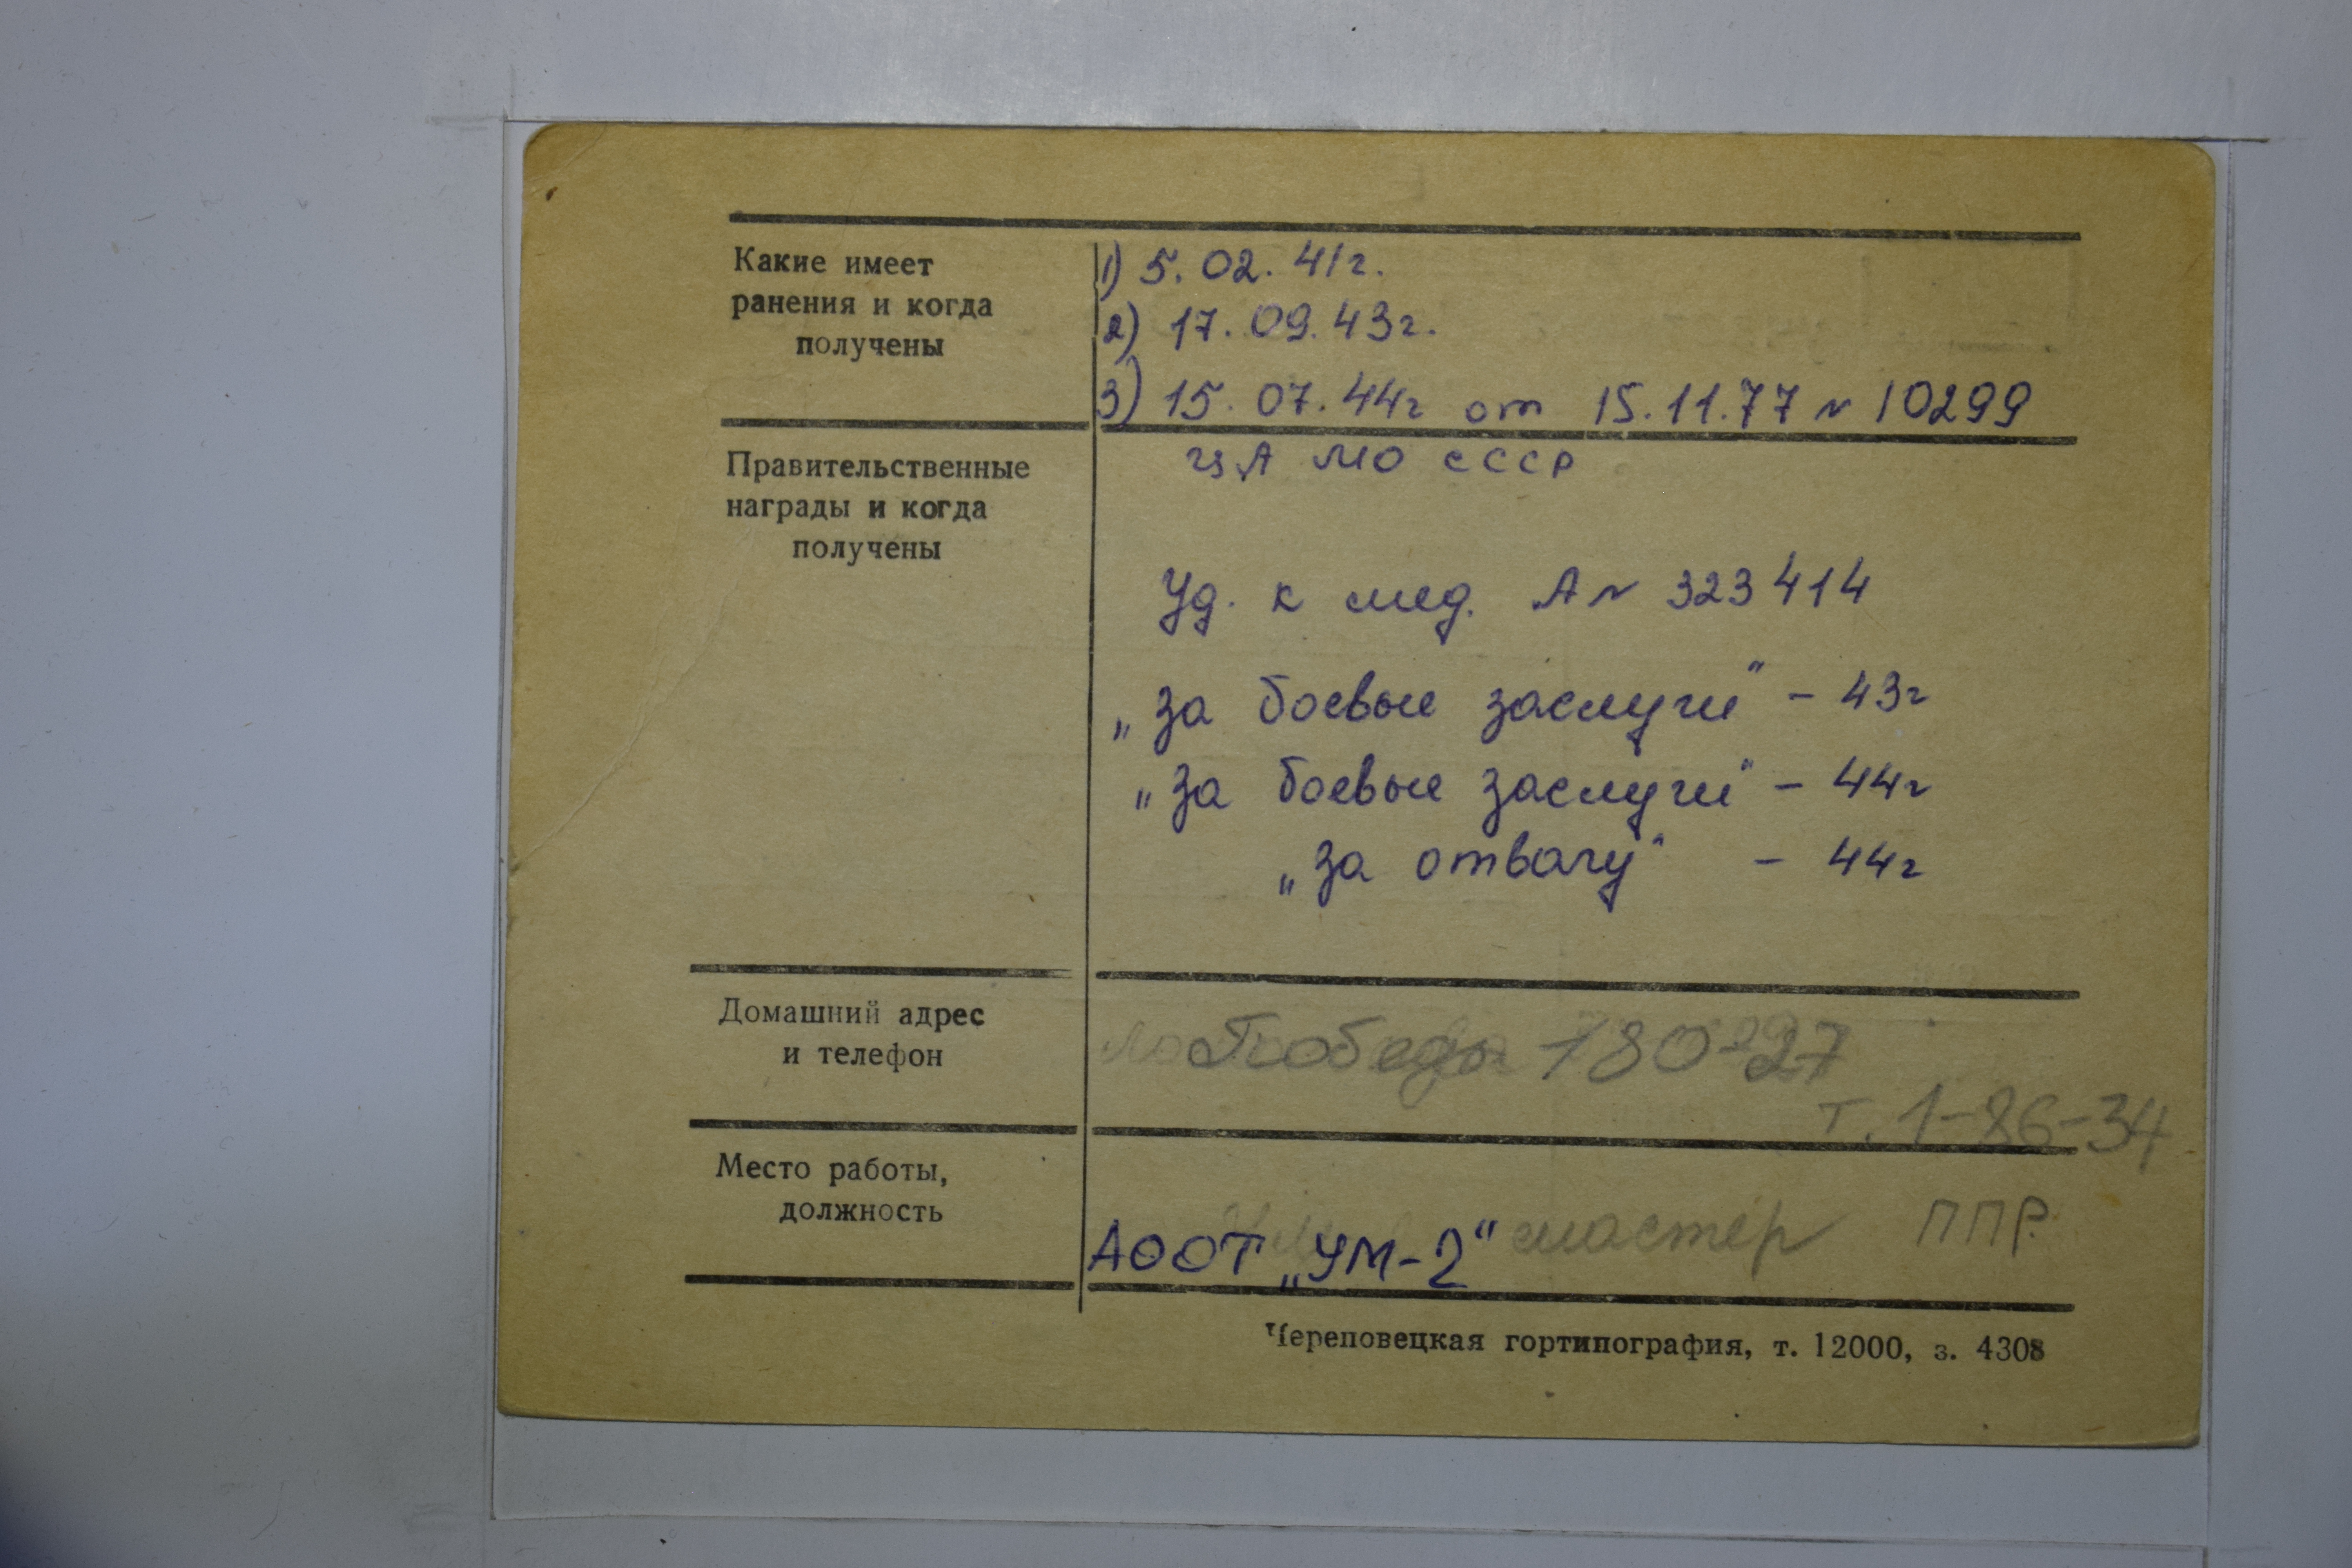 Какие имеет
ранения и когда
получены
1) 5. 02. 41г.
2) 17. 09. 43г.
3) 15. 07. 44г от 15.11.77 № 10299
ЦА МО СССР
Правительственные
награды и когда
получены
Уд. к мед. А № 323414
„За боевые заслуги" - 43г
„За боевые заслуги" - 44г
„За отвагу" - 44г
Домашний адрес
и телефон
Победы 180-27
т. 1-86-34
Место работы,
должность
АООТ „УМ-2" мастер ППР.
Череповецкая гортипография, т. 12000, з. 4308